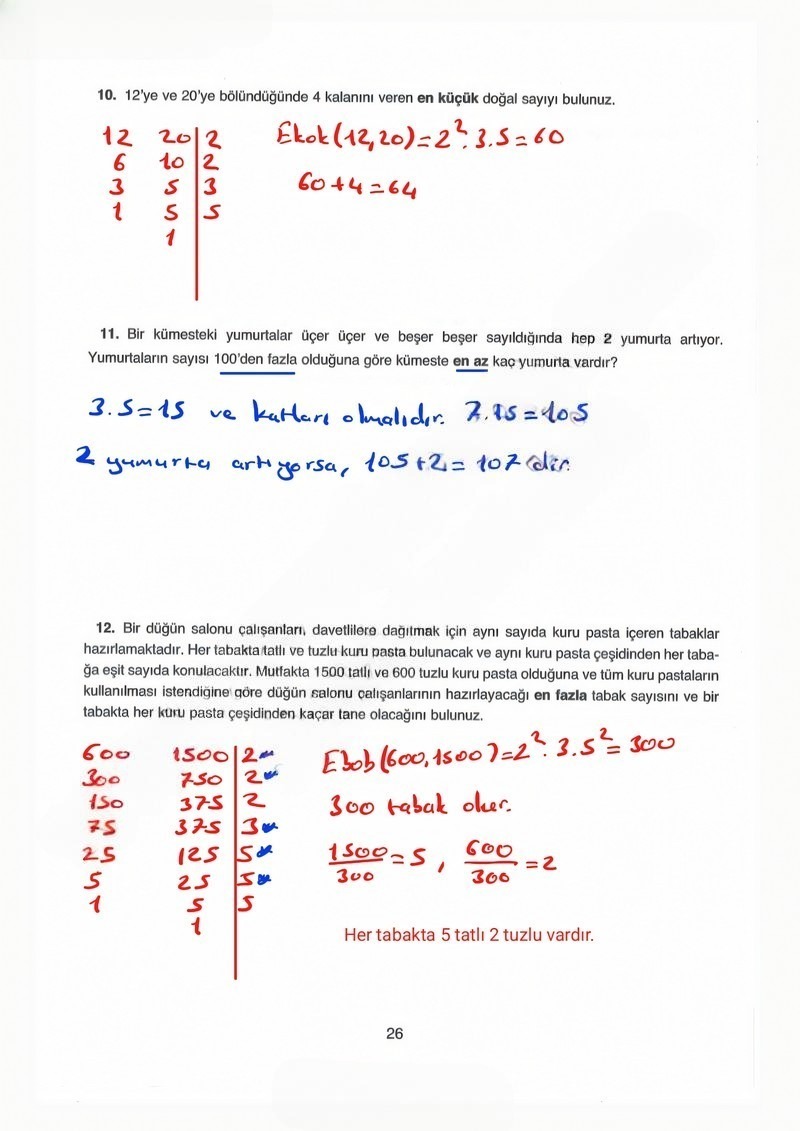 10. 12'ye ve 20'ye bölündüğünde 4 kalanını veren en küçük doğal sayıyı bulunuz.
12 20 | 2 Ekok(12,20)=2².3.5=60
6 10 | 2
3 5 | 3 60+4=64
1 5 | 5
1
11. Bir kümesteki yumurtalar üçer üçer ve beşer beşer sayıldığında hep 2 yumurta artıyor.
Yumurtaların sayısı 100'den fazla olduğuna göre kümeste en az kaç yumurta vardır?
3.5=15 ve katları olmalıdır. 7.15=105
2 yumurta artıyorsa, 105+2=107 dir.
12. Bir düğün salonu çalışanları, davetlilere dağıtmak için aynı sayıda kuru pasta içeren tabaklar
hazırlamaktadır. Her tabakta tatlı ve tuzlu kuru pasta bulunacak ve aynı kuru pasta çeşidinden her taba-
ğa eşit sayıda konulacaktır. Mutfakta 1500 tatlı ve 600 tuzlu kuru pasta olduğuna ve tüm kuru pastaların
kullanılması istendiğine göre düğün salonu çalışanlarının hazırlayacağı en fazla tabak sayısını ve bir
tabakta her kuru pasta çeşidinden kaçar tane olacağını bulunuz.
600 1500 | 2 Ebob(600,1500)=2².3.5²=300
300 750 | 2
150 375 | 2 300 tabak olur.
75 375 | 3
25 125 | 5 1500/300=5, 600/300=2
5 25 | 5
1 5 | 5
1
Her tabakta 5 tatlı 2 tuzlu vardır.
26